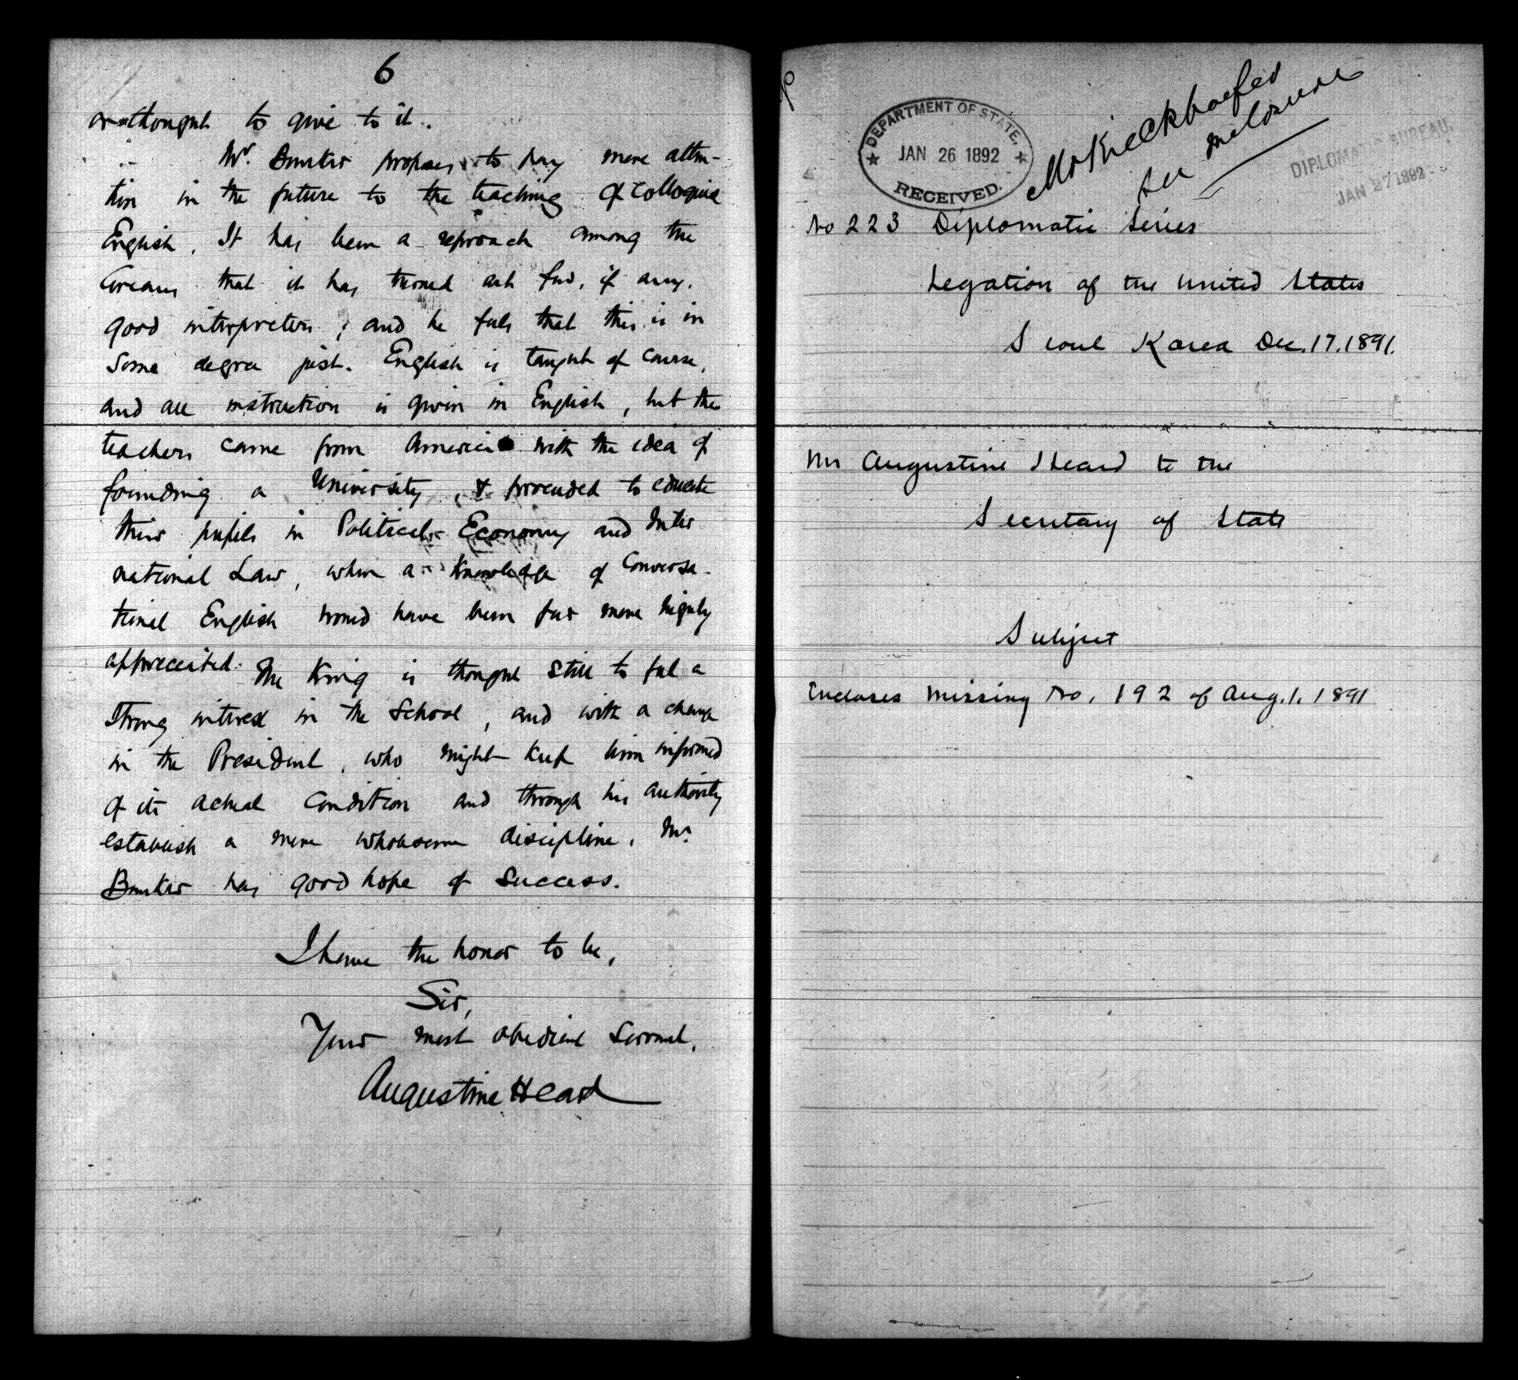 6
or thought to give to it.
Mr. Bunker proposes to pay more atten-
tion in the future to the teaching of Colloquial
English. It has been a reproach among the
Coreans that it has turned out few, if any,
good interpreters; and he feels that this is in
some degree just. English is taught of course,
and all instruction is given in English, but the
teachers came from America with the idea of
founding a University, & proceeded to educate
their pupils in Political Economy and Inter
national Law, when a knowledge of Conversa-
tional English would have been far more highly
appreciated. The King is thought still to feel a
strong interest in the School, and with a change
in the President, who might keep him informed
of its actual Condition and through his authority
establish a more wholesome discipline, Mr.
Bunker has good hope of success.
I have the honor to be,
Sir,
Your most obedient Servant,
Augustine Heard
DEPARTMENT OF STATE,
JAN 26 1892
RECEIVED.
Mr Kieckhoefer
see inclosure
DIPLOMATIC BUREAU,
JAN 27 1892
No 223 Diplomatic Series
Legation of the United States
Seoul Korea Dec. 17. 1891.
Mr Augustine Heard to the
Secretary of State
Subject
Encloses missing No. 192 of Aug. 1. 1891